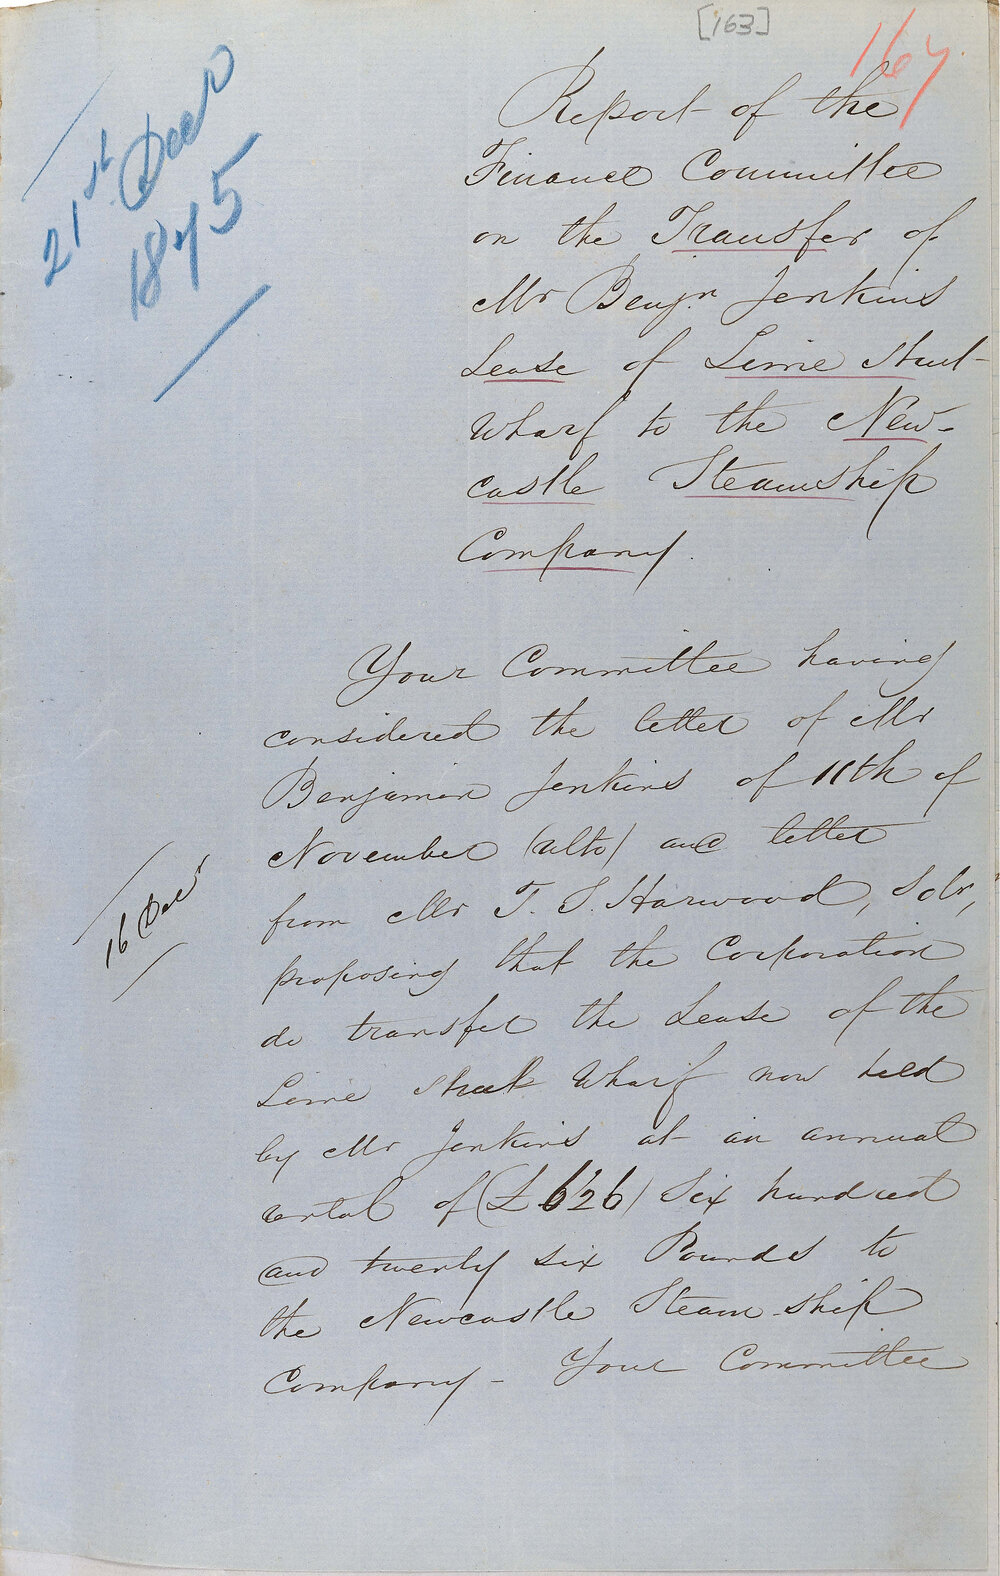 [163]
167
21st Decr
1875
Report of the
Finance Committee
on the Transfer of
Mr Benjn Jenkins
Lease of Lime Street
Wharf to the New-
castle Steamship
Company.
Your Committee having
considered the letter of Mr
Benjamin Jenkins of 11th of
November (ulto) and letter
16 Decr
from Mr T. S. Harwood, Solr,
proposing that the Corporation
do transfer the Lease of the
Lime Street Wharf now held
by Mr Jenkins at an annual
rental of (£626) Six hundred
and twenty six Pounds to
the Newcastle Steam ship
Company - Your Committee